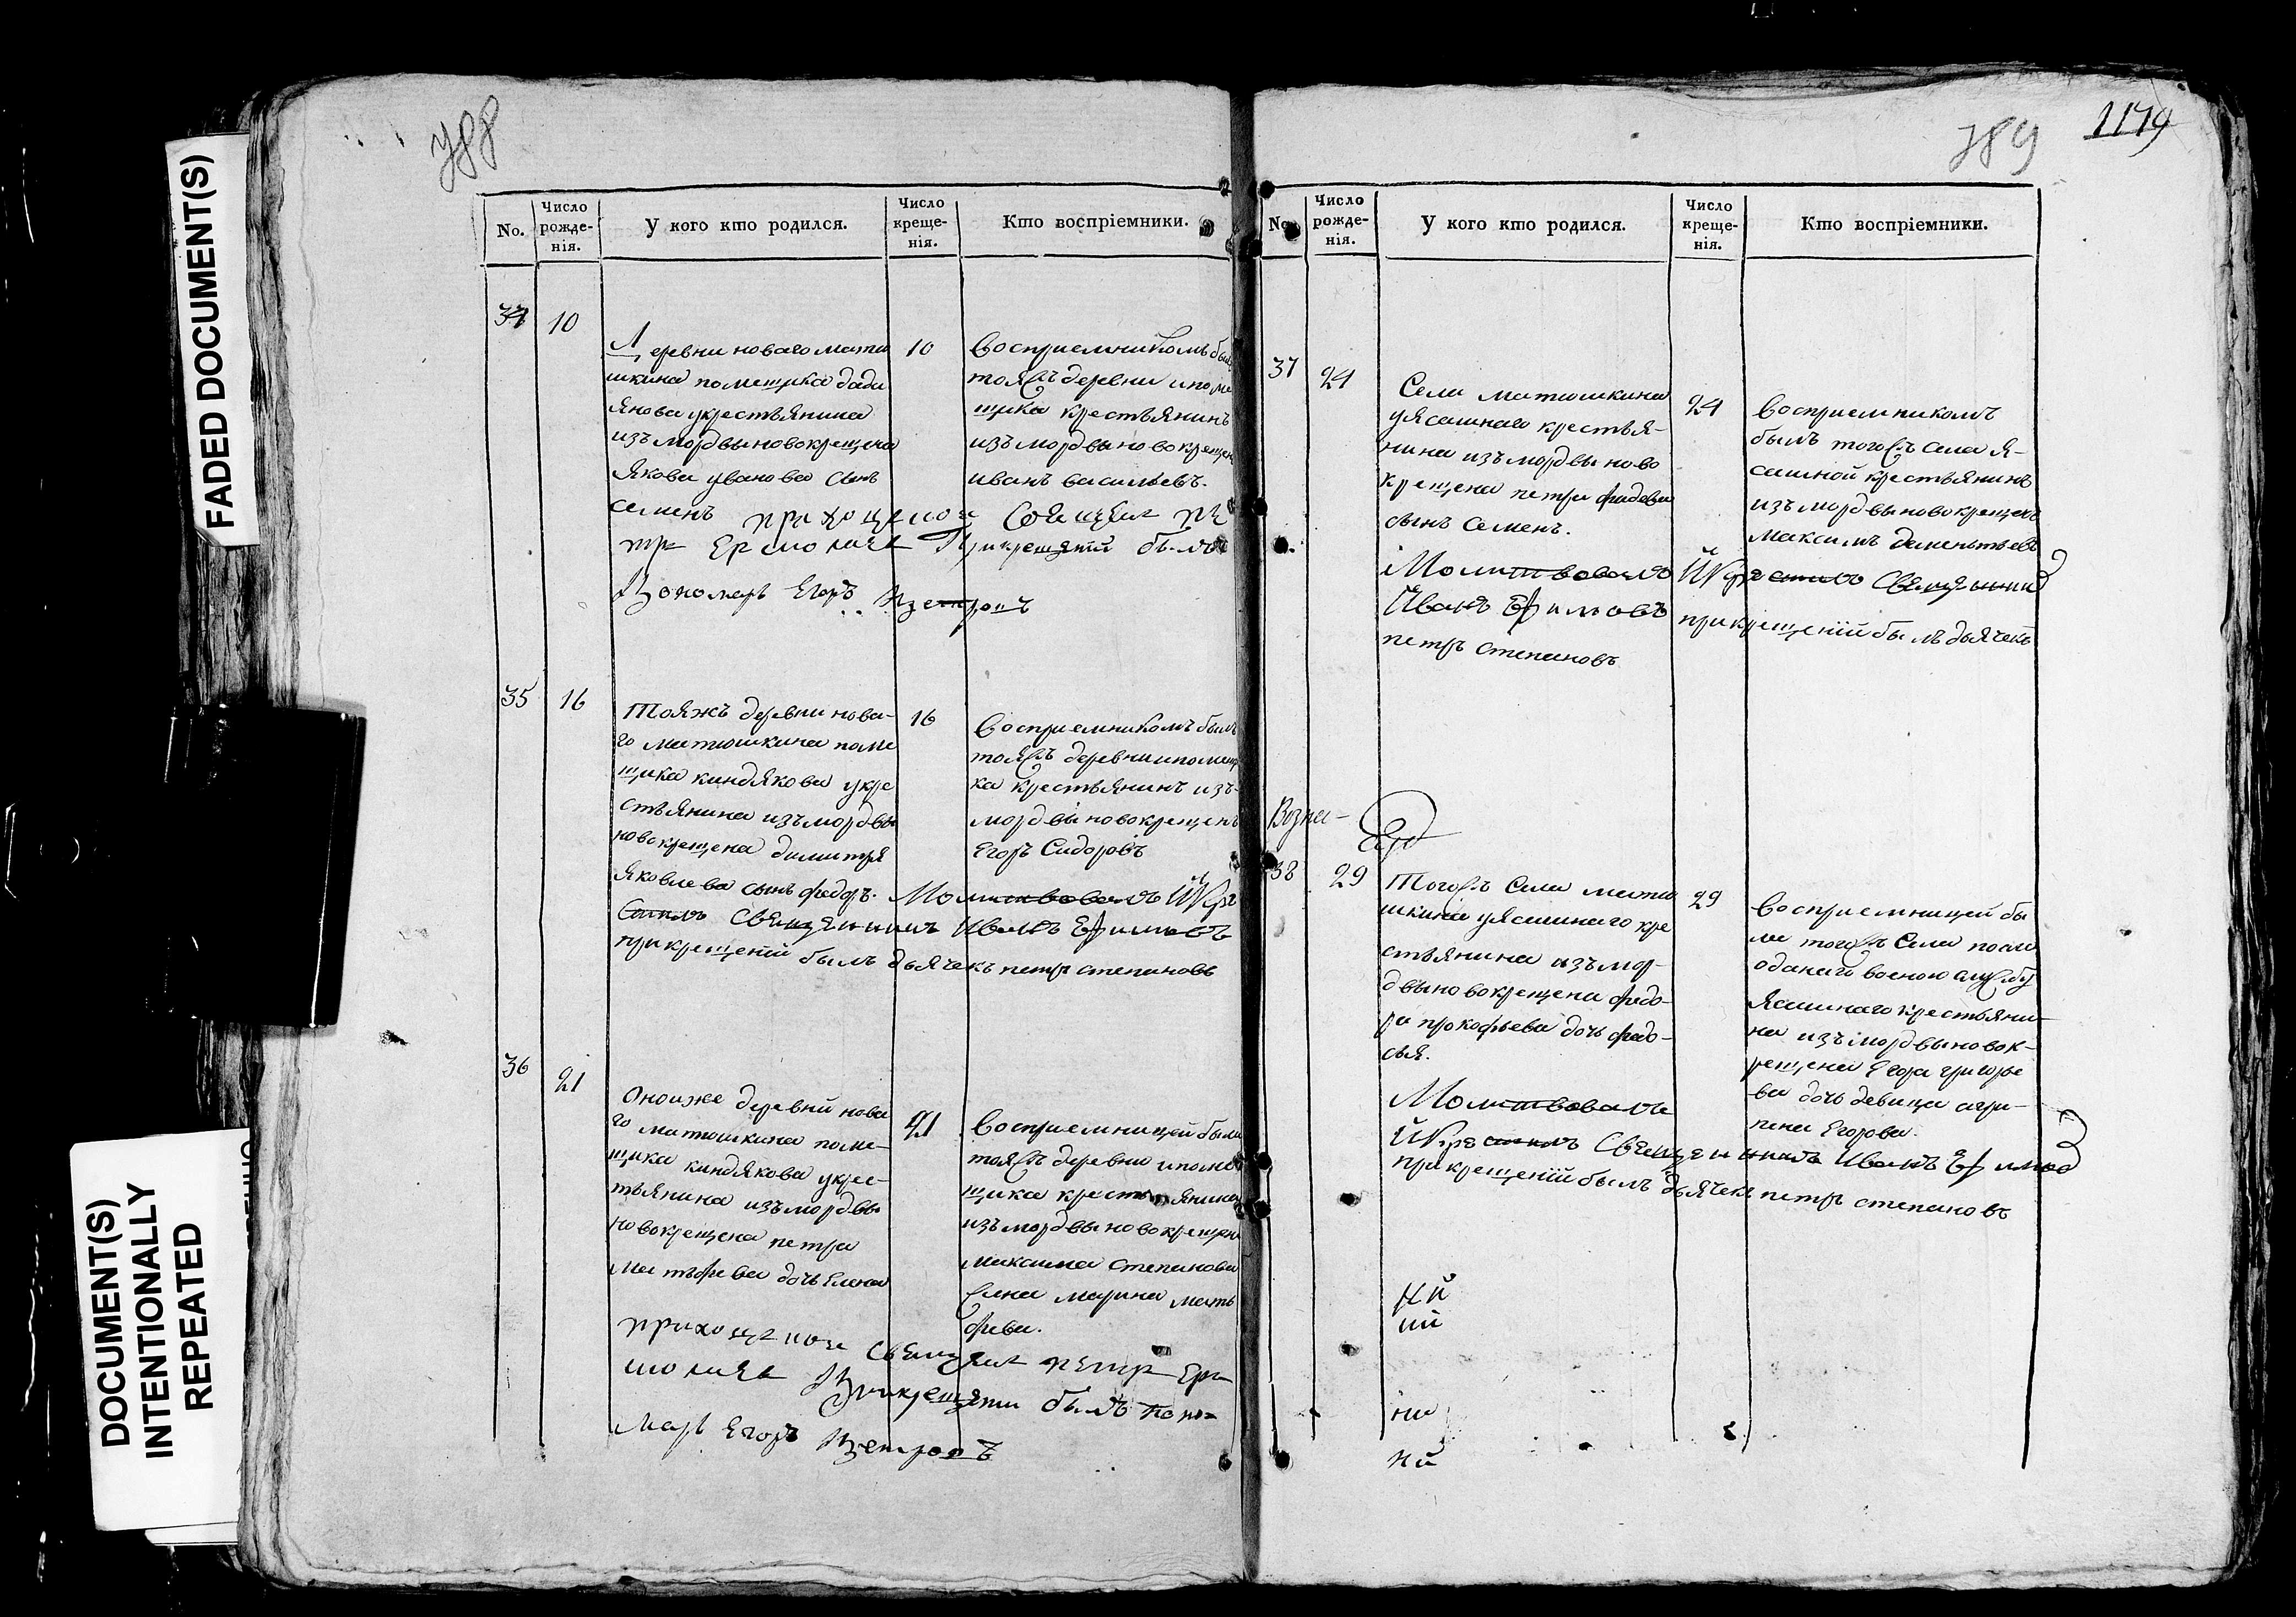 FADED DOCUMENT(S)
DOCUMENT(S)
INTENTIONALLY
REPEATED
788
No.
Число
рожде-
нія.
У кого кто родился.
Число
креще-
нія.
Кто воспріемники.
34
10
Деревни новаго матю
шкина помещика дади
янова укрестьянина
изъ мордвы новокрещена
Якова иванова сынъ
семенъ
10
восприемникомъ былъ
тояжъ деревни ипоме
щика крестьянинъ
изъ мордвы новокрещен
иванъ васильевъ.
При крещении былъ
Пономарь Егоръ Петровъ
35
16
Тояжъ деревни нова-
го матюшкина поме
щика киндякова укре
стьянина изъ мордвы
новокрещена димитря
Яковлева сынъ федоръ.
16
восприемникомъ былъ
тояжъ деревни ипомещ
ка крестьянинъ изъ
мордвы новокрещенъ
Егоръ Сидоровъ
Молитвовалъ Йкре
стилъ Священникъ Иванъ Ефимовъ
прикрещеній былъ дьячекъ петръ степановъ
36
21
Оноиже деревни нова
го матюшкина поме-
щика киндякова укрес-
тьянина изъ мордвы
новокрещена петра
матъфева дочь Елена
21
восприемницей была
тояжъ деревни ипоме
щика крестьянина
изъ мордвы новокрещена
максима степанова
жена марина мать
фева.
петръ Ер
молаевъ Прикрещени былъ поно
марь Егоръ Петровъ
789
1179
No.
Число
рожде-
нія.
У кого кто родился.
Число
креще-
нія.
Кто воспріемники.
37
24
Села матюшкина
уясашнаго крестья-
нина изъ мордвы ново
крещена петра фадеева
сынъ Семенъ.
24
восприемникомъ
былъ тогожъ села я-
сашной крестьянинъ
изъ мордвы новокрещенъ
максимъ дементьевъ
Молитвовалъ Йкрестилъ Священникъ
Иванъ Ефимовъ прикрещеніи былъ дьячекъ
петръ степановъ
Возне-
38
29
Тогожъ Села матю
шкина уясашнаго кре
стьянина изъ мор-
двы новокрещена федо-
ра прокофьева дочь федо-
сья.
29
восприемницей бы
ла тогожъ Села
отданаго военою службу
Ясашнаго крестьяни-
на изъ мордвы новок-
рещена Егора григорье
ва дочь девица агри-
пена Егорова.
Молитвовалъ
Йкрестилъ Священникъ Иванъ Ефимов
прикрещеніи былъ дьячекъ петръ степановъ